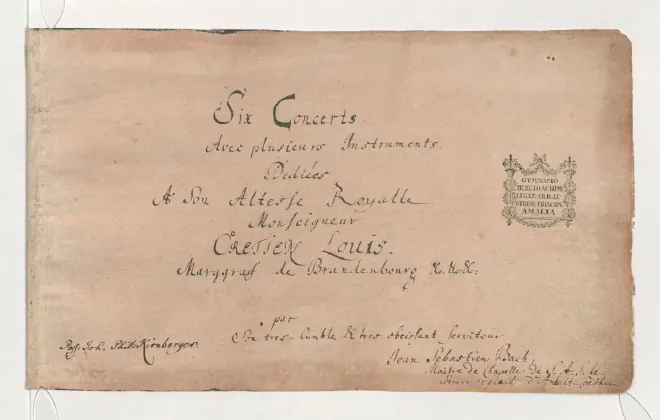 Six Concerts
Avec plusieurs Instruments.
Dediées
A Son Altesse Royalle
Monseigneur
CRETIEN Louis.
Marggraf de Brandenbourg &c.&c.&c:
par
Son tres-humble & tres obeissant serviteur
Jean Sebastien Bach,
Maitre de Chapelle de S. A. S. le
Prince regnant d'Anhalt-Coethen.
Poss: Joh. Phil. Kirnberger.
GYMNASIO
REG. IOACHIM.
LEGAT. AB ILLU
STRISS. PRINCIPE
AMALIA